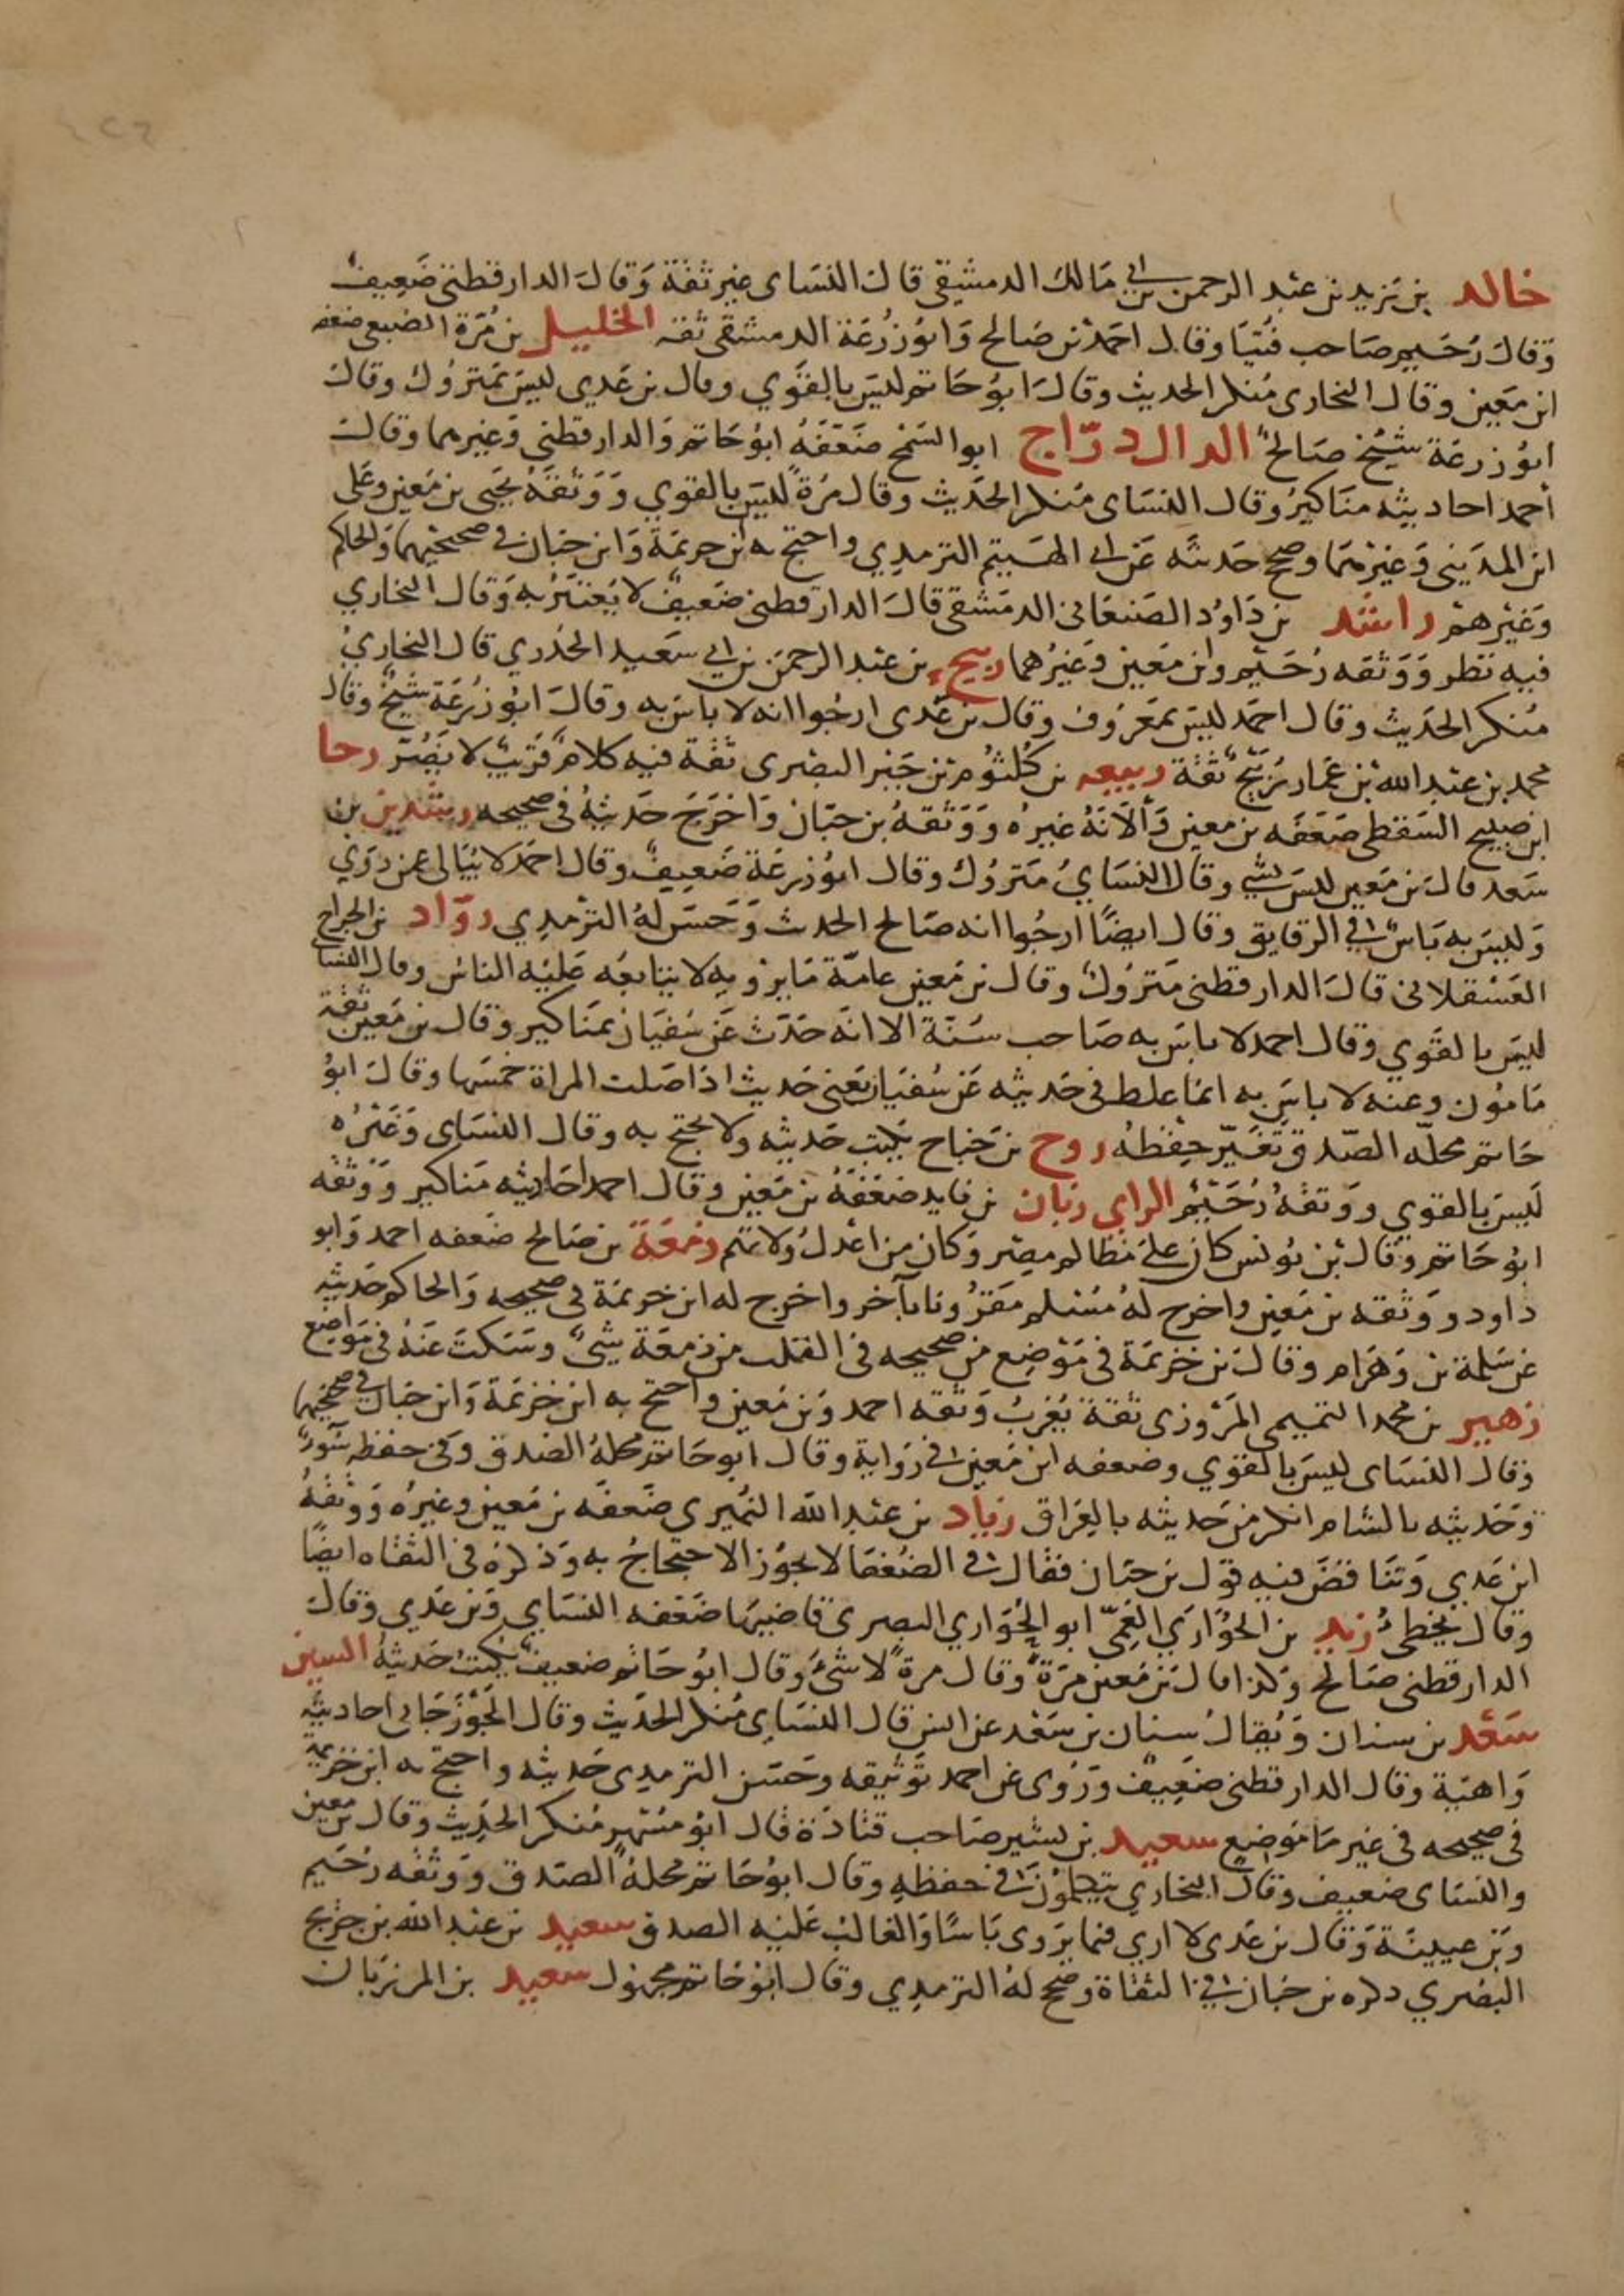 خالد بن يزيد بن عبد الرحمن بن ابي مالك الدمشقي قال النساى غير ثقة وقال الدارقطني ضعيف
وقال دحيم صاحب فتيا وقال احمد بن صالح وابو زرعة الدمشقي ثقه الخليل بن مرة الضبعى ضعفه
ابن معين وقال البخارى منكر الحديث وقال ابو حاتم ليس بالقوي وقال بن عدي ليس بمتروك وقال
ابو زرعة شيخ صالح الدال دراج ابو السمح ضعفه ابو حاتم والدارقطني وغيرهما وقال
أحمد احاديثه مناكير وقال النساى منكر الحديث وقال مرة ليس بالقوي ووثقه يحيى بن معين وعلى
ابن المديني وغيرهما وصحح حديثه عن ابي الهيتم الترمدي واحتج به ابن خزيمة وابن حبان في صحيحيهما والحاكم
وغيرهم راشد بن داود الصنعاني الدمشقي قال الدارقطني ضعيف لا يعتبر به وقال البخاري
فيه نظر ووثقه دحيم وابن معين وغيرهما ربيح بن عبد الرحمن بن ابي سعيد الخدري قال البخاري
منكر الحديث وقال احمد ليس بمعروف وقال بن عدى ارجوا انه لا باس به وقال ابو زرعة شيخ وقال
محمد بن عبد الله بن عمار ربيح ثقة ربيعه بن كلثوم بن جبر البصرى ثقة فيه كلام قريب لا يضر رحا
ابن صبيح السقطى ضعفه بن معين وألانه غيره ووثقه بن حبان واخرج حديثه في صحيحه رشدين بن
سعد قال بن معين ليس بشي وقال النساي متروك وقال ابو زرعة ضعيف وقال احمد لا يبالى عمن روي
وليس به باس في الرقايق وقال ايضا ارجوا انه صالح الحدث وحسن له الترمدي رواد بن الجراح
العسقلانى قال الدارقطنى متروك وقال بن معين عامة ما يرويه لا يتابعه عليه الناس وقال النساي
ليس بالقوي وقال احمد لا باس به صاحب سنة الا انه حدث عن سفيان بمناكير وقال بن معين ثقة
مامون وعنه لا باس به انما غلط في حديثه عن سفيان يعنى حديث اذا صلت المراة خمسها وقال ابو
حاتم محله الصدق تغير حفظه روح بن جناح يكتب حديثه ولا يحتج به وقال النساى وغيره
ليس بالقوي ووثقه دحيم الراي زبان بن فايد ضعفه بن معين وقال احمد احاديثه مناكير ووثقه
ابو حاتم وقال بن يونس كان على مظالم مصر وكان من اعدل ولاتهم زمعة بن صالح ضعفه احمد وابو
داود ووثقه بن معين واخرج له مسلم مقرونا بآخر واخرج له ابن خزيمة في صحيحه والحاكم حديثه
عن سلمة بن وهرام وقال بن خزيمة في موضع من صحيحه في القلب من زمعة شىء وسكت عنه في مواضع
زهير بن محمد التميمى المروزى ثقة يغرب وثقه احمد وبن معين واحتج به ابن خزيمة وابن حبان في صحيحيهما
وقال النساى ليس بالقوي وضعفه ابن معين في رواية وقال ابو حاتم محله الصدق وفي حفظه سوء
وحديثه بالشام انكر من حديثه بالعراق زياد بن عبد الله النميرى ضعفه بن معين وغيره ووثقه
ابن عدي وتناقض فيه قول بن حبان فقال في الضعفا لا يجوز الاحتجاج به وذكره في الثقاه ايضا
وقال يخطىء زيد بن الحواري العمي ابو الحواري البصرى قاضيها ضعفه النساي وبن عدي وقال
الدارقطني صالح وكذا قال بن معين مرة وقال مرة لا شيء وقال ابو حاتم ضعيف يكتب حديثه السين
سعد بن سنان ويقال سنان بن سعد عن انس قال النساى منكر الحديث وقال الجوزجاني احاديثه
واهية وقال الدارقطنى ضعيف وروى عن احمد توثيقه وحسن الترمدى حديثه واحتج به ابن خزيمة
في صحيحه في غير ما موضع سعيد بن بشير صاحب قتادة قال ابو مسهر منكر الحديث وقال بن معين
والنساى ضعيف وقال البخاري يتكلمون في حفظه وقال ابو حاتم محله الصدق ووثقه دحيم
وبن عيينة وقال بن عدى لا ارى فيما يروى باسا والغالب عليه الصدق سعيد بن عبد الله بن جريج
البصري دكره بن حبان في الثقاة وصحح له الترمدي وقال ابو حاتم مجهول سعيد بن المرزبان